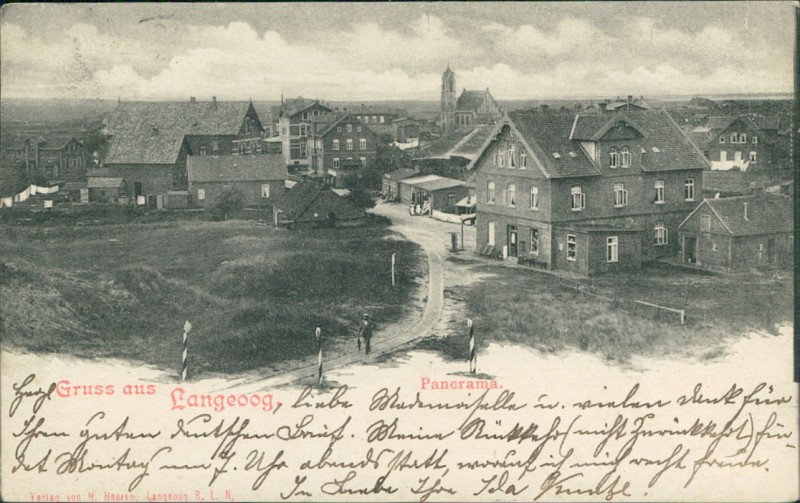 Gruss aus Langeoog,
Panorama.
Hrzl liebe Mademoiselle u. vielen Dank für
Ihren guten deutschen Brief. Meine Rückkehr (nicht Zurückkehr) fin-
det Montag um 7. Uhr abends statt, worauf ich mich recht freue.
In Liebe Ihre Ida
Verlag von H. Heeren, Langeoog B. L. N.